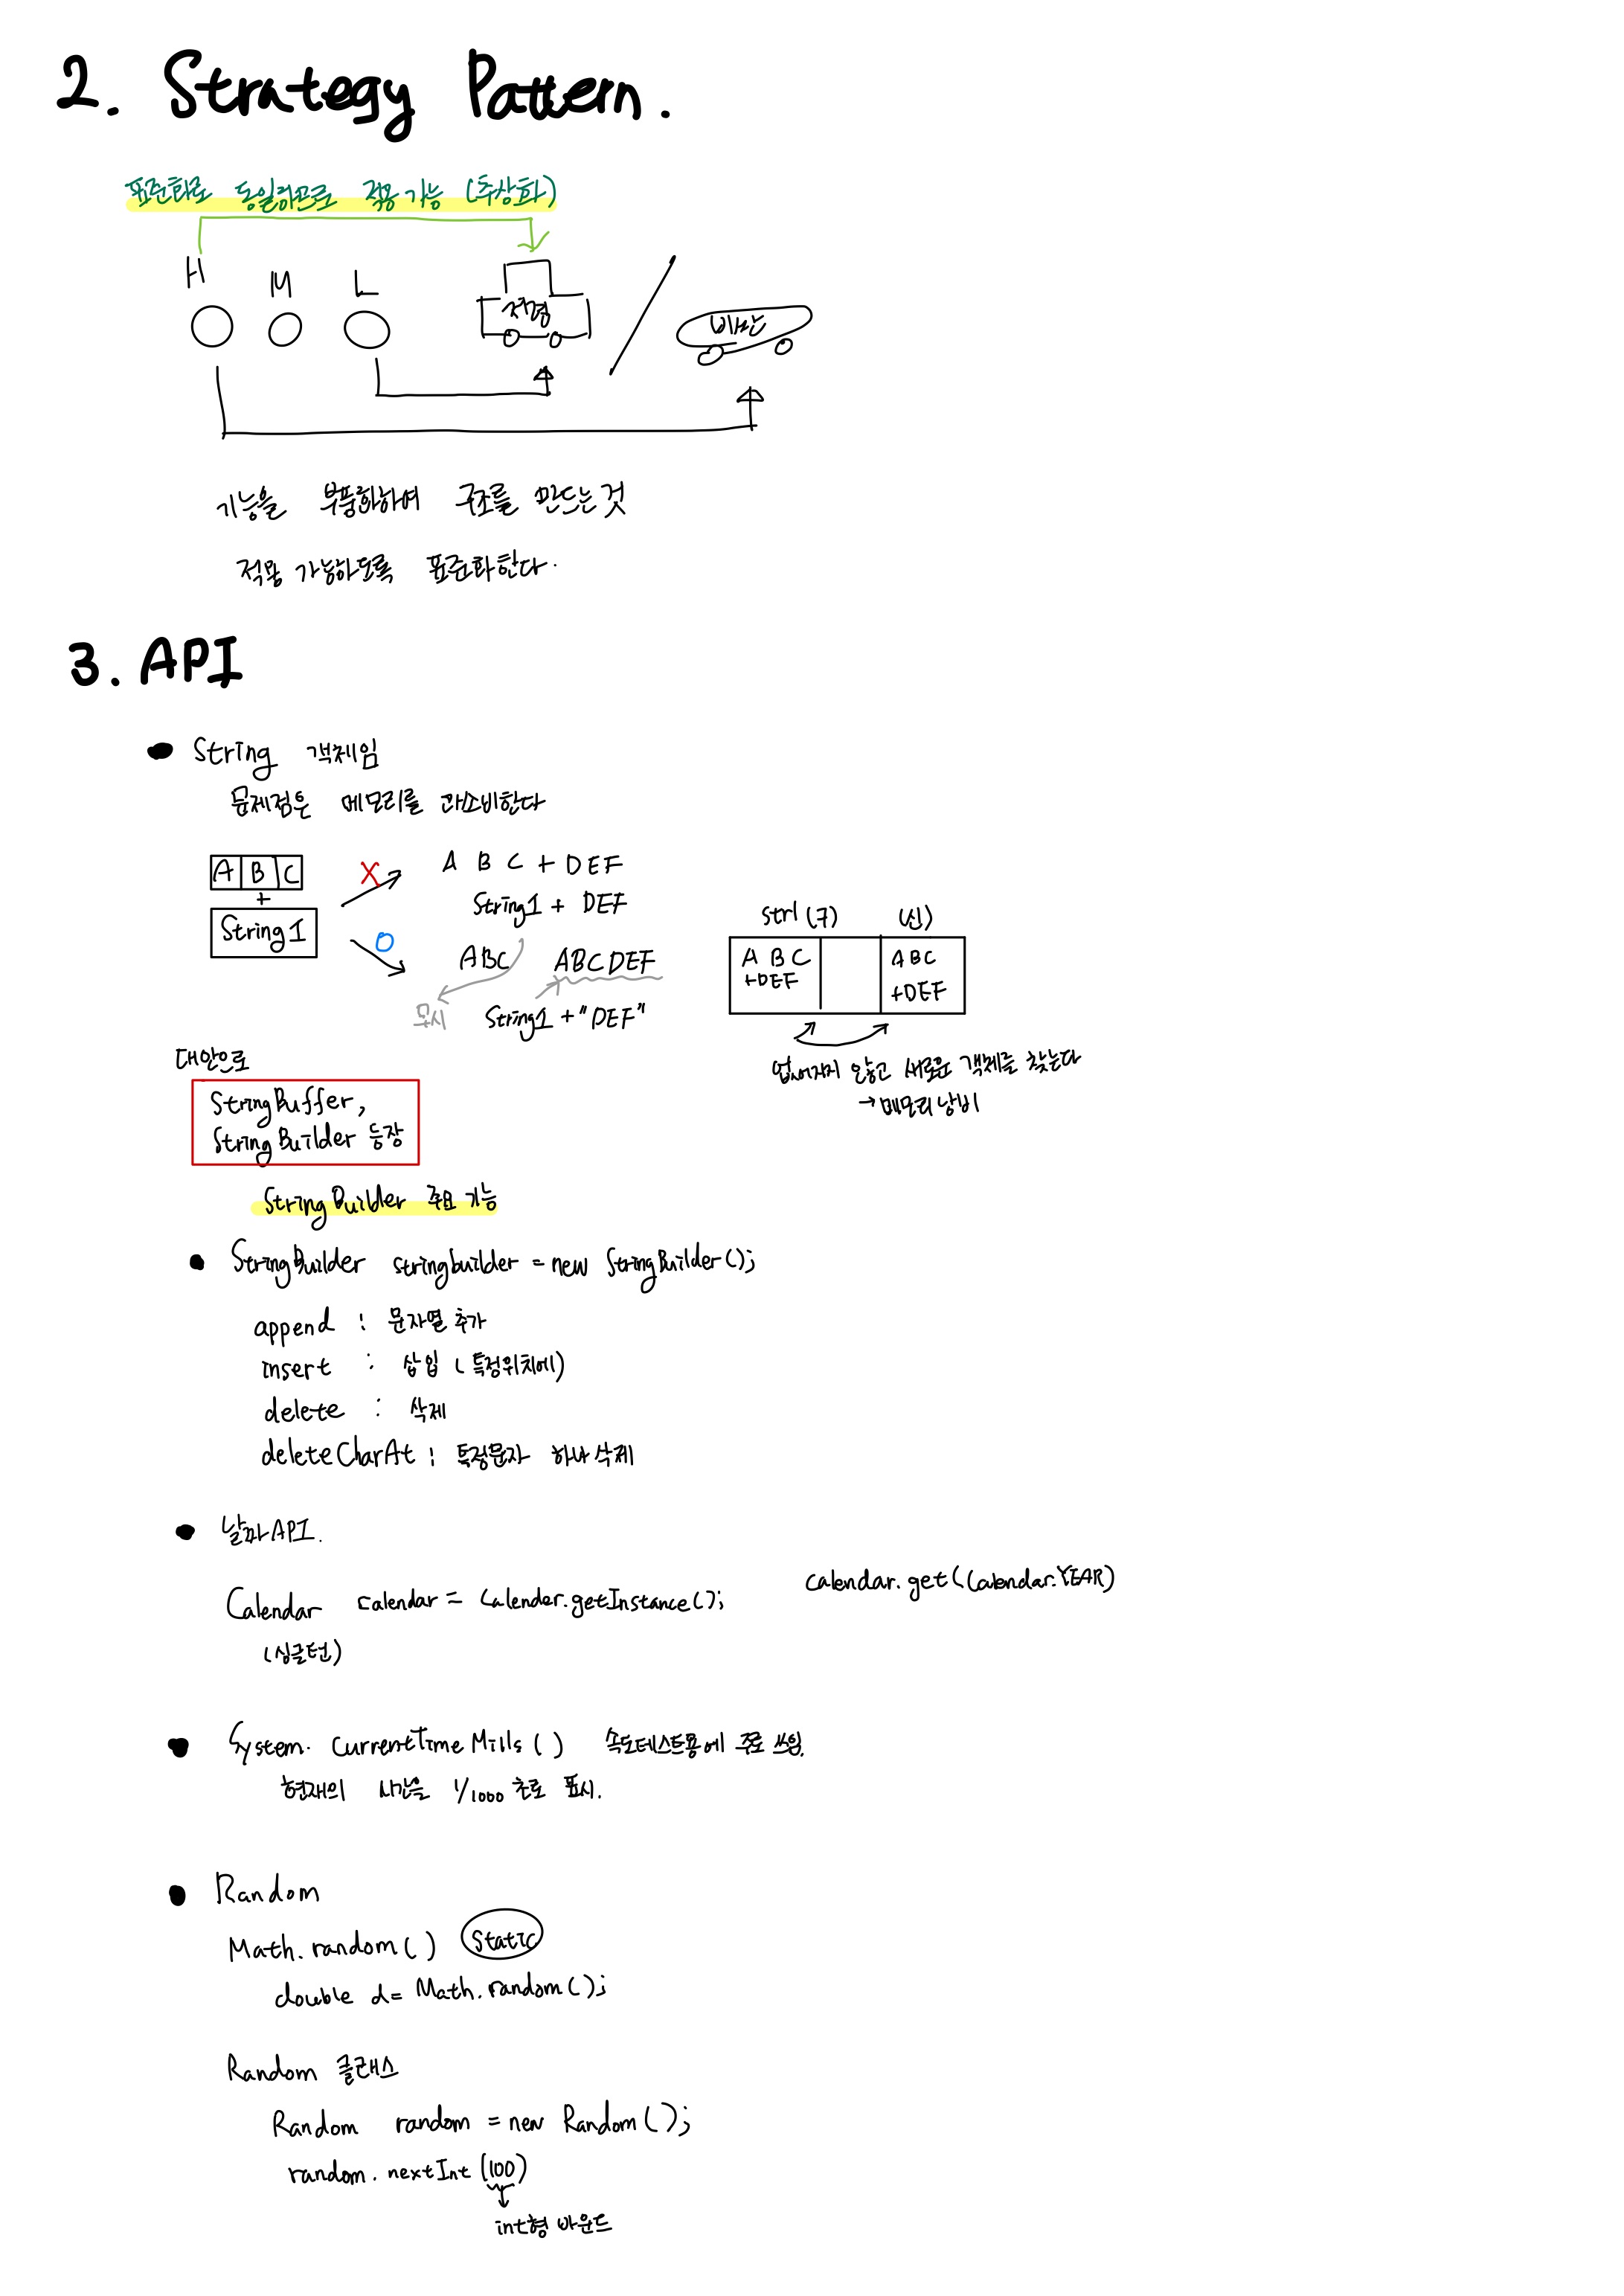 2. Strategy Pattern.
표준화로 동일하므로 적용 가능 (추상화)
H M L
저렴 비싼
기능을 부품화하여 구조를 만드는 것
적용 가능하도록 표준화한다.
3. API
String 객체임
문제점은 메모리를 과소비한다
A B C
+
String1
X
A B C + DEF
String1 + DEF
O
ABC ABCDEF
무시 String1 + "DEF"
str1 (구) (신)
A B C
+DEF
ABC
+DEF
없어지지 않고 새로운 객체를 찾는다
→ 메모리 낭비
대안으로
StringBuffer,
StringBuilder 등장
StringBuilder 주요 기능
StringBuilder stringbuilder = new StringBuilder();
append : 문자열 추가
insert : 삽입 (특정위치에)
delete : 삭제
deleteCharAt : 특정문자 하나 삭제
날짜 API.
Calendar calendar = Calender.getInstance(); calendar.get(Calendar.YEAR)
(싱글턴)
System. CurrentTimeMills () 속도테스트용에 주로 쓰임.
현재의 시간을 1/1000 초로 표시.
Random
Math.random() Static
double d = Math.random();
Random 클래스
Random random = new Random();
random. nextInt (100)
int형 바운드